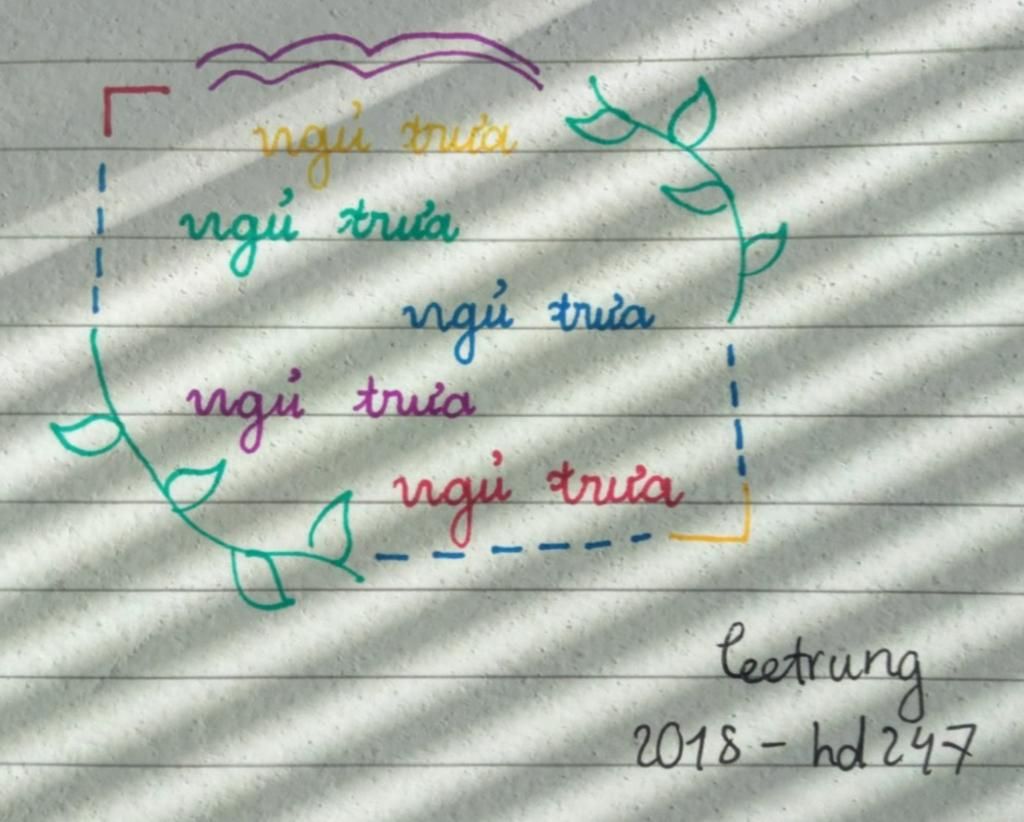 ngủ trưa
ngủ trưa
ngủ trưa
ngủ trưa
ngủ trưa
leetrung
2018 - hd247